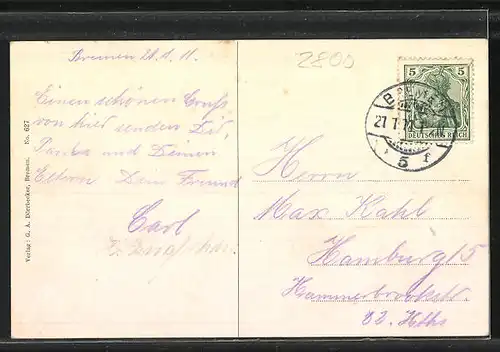 Bremen 21.1.11.
2800
Einen schönen Gruß
von hier senden Dir,
und Deinen
Eltern Dein Freund
Carl
Verlag: G. A. Dörrbecker, Bremen. No. 627
5 5
DEUTSCHES REICH
BREMEN
21.1.11
5 f
Herrn
Max Kahl
Hamburg 5
Hammerbrookstr.
82. Hths